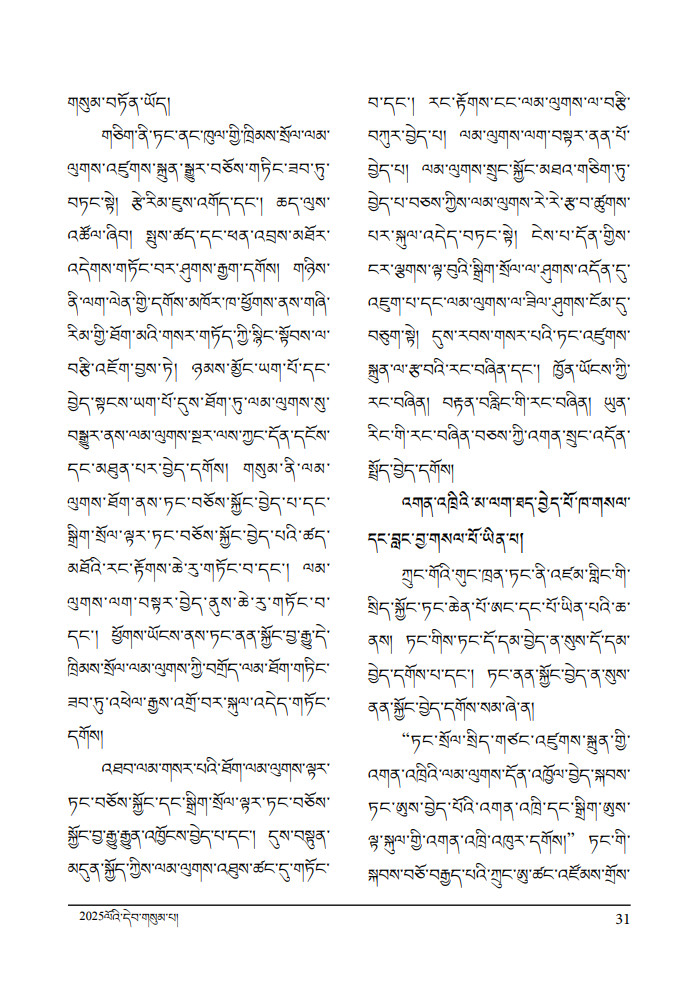 གསུམ་བཏོན་ཡོད།
གཅིག་ནི་ཏང་ནང་ཁུལ་གྱི་ཁྲིམས་སྲོལ་ལམ་
ལུགས་འཛུགས་སྐྲུན་སྒྱུར་བཅོས་གཏིང་ཟབ་ཏུ་
བཏང་སྟེ། རྩེ་རིམ་ཇུས་འགོད་དང་། ཆད་ལུས་
འཚོལ་ཞིབ། སྤུས་ཚད་དང་ཕན་འབྲས་མཐོར་
འདེགས་གཏོང་བར་ཤུགས་རྒྱག་དགོས། གཉིས་
ནི་ལག་ལེན་གྱི་དགོས་མཁོར་ཁ་ཕྱོགས་ནས་གཞི་
རིམ་གྱི་ཐོག་མའི་གསར་གཏོད་ཀྱི་སྙིང་སྟོབས་ལ་
བརྩི་འཇོག་བྱས་ཏེ། ཉམས་མྱོང་ཡག་པོ་དང་
བྱེད་སྟངས་ཡག་པོ་དུས་ཐོག་ཏུ་ལམ་ལུགས་སུ་
བསྒྱུར་ནས་ལམ་ལུགས་སྔར་ལས་ཀྱང་དོན་དངོས་
དང་མཐུན་པར་བྱེད་དགོས། གསུམ་ནི་ལམ་
ལུགས་ཐོག་ནས་ཏང་བཅོས་སྐྱོང་བྱེད་པ་དང་
སྒྲིག་སྲོལ་ལྟར་ཏང་བཅོས་སྐྱོང་བྱེད་པའི་ཚད་
མཐོའི་རང་རྟོགས་ཆེ་རུ་གཏོང་བ་དང་། ལམ་
ལུགས་ལག་བསྟར་བྱེད་ནུས་ཆེ་རུ་གཏོང་བ་
དང་། ཕྱོགས་ཡོངས་ནས་ཏང་ནན་སྐྱོང་བྱ་རྒྱུ་དེ་
ཁྲིམས་སྲོལ་ལམ་ལུགས་ཀྱི་བགྲོད་ལམ་ཐོག་གཏིང་
ཟབ་ཏུ་འཕེལ་རྒྱས་འགྲོ་བར་སྐུལ་འདེད་གཏོང་
དགོས།
འཐབ་ལམ་གསར་པའི་ཐོག་ལམ་ལུགས་ལྟར་
ཏང་བཅོས་སྐྱོང་དང་སྒྲིག་སྲོལ་ལྟར་ཏང་བཅོས་
སྐྱོང་བྱ་རྒྱུ་རྒྱུན་འཁྱོངས་བྱེད་པ་དང་། དུས་བསྟུན་
མདུན་སྐྱོད་ཀྱིས་ལམ་ལུགས་འཐུས་ཚང་དུ་གཏོང་
བ་དང་། རང་རྟོགས་ངང་ལམ་ལུགས་ལ་བརྩི་
བཀུར་བྱེད་པ། ལམ་ལུགས་ལག་བསྟར་ནན་པོ་
བྱེད་པ། ལམ་ལུགས་སྲུང་སྐྱོང་མཐའ་གཅིག་ཏུ་
བྱེད་པ་བཅས་ཀྱིས་ལམ་ལུགས་རེ་རེ་རྩ་བ་ཚུགས་
པར་སྐུལ་འདེད་བཏང་སྟེ། ངེས་པ་དོན་གྱིས་
ངར་ལྕགས་ལྟ་བུའི་སྒྲིག་སྲོལ་ལ་ཤུགས་འདོན་དུ་
འཇུག་པ་དང་ལམ་ལུགས་ལ་ཟིལ་ཤུགས་ངོམ་དུ་
བཅུག་སྟེ། དུས་རབས་གསར་པའི་ཏང་འཛུགས་
སྐྲུན་ལ་རྩ་བའི་རང་བཞིན་དང་། ཁྱོན་ཡོངས་ཀྱི་
རང་བཞིན། བརྟན་བརླིང་གི་རང་བཞིན། ཡུན་
རིང་གི་རང་བཞིན་བཅས་ཀྱི་འགན་སྲུང་འདོན་
སྤྲོད་བྱེད་དགོས།
འགན་འཁྲིའི་མ་ལག་ཐད་བྱེད་པོ་ཁ་གསལ་
དང་བླང་བྱ་གསལ་པོ་ཡིན་པ།
ཀྲུང་གོའི་གུང་ཁྲན་ཏང་ནི་འཛམ་གླིང་གི་
སྲིད་སྐྱོང་ཏང་ཆེན་པོ་ཨང་དང་པོ་ཡིན་པའི་ཆ་
ནས། ཏང་གིས་ཏང་དོ་དམ་བྱེད་ན་སུས་དོ་དམ་
བྱེད་དགོས་པ་དང་། ཏང་ནན་སྐྱོང་བྱེད་ན་སུས་
ནན་སྐྱོང་བྱེད་དགོས་སམ་ཞེ་ན།
“ཏང་སྲོལ་སྲིད་གཙང་འཛུགས་སྐྲུན་གྱི་
འགན་འཁྲིའི་ལམ་ལུགས་དོན་འཁྱོལ་བྱེད་སྐབས་
ཏང་ཨུས་བྱེད་པོའི་འགན་འཁྲི་དང་སྒྲིག་ཨུས་
ལྟ་སྐུལ་གྱི་འགན་འཁྲི་འཁུར་དགོས།” ཏང་གི་
སྐབས་བཅོ་བརྒྱད་པའི་ཀྲུང་ཨུ་ཚང་འཛོམས་གྲོས་
2025ལོའི་དེབ་གསུམ་པ། 31